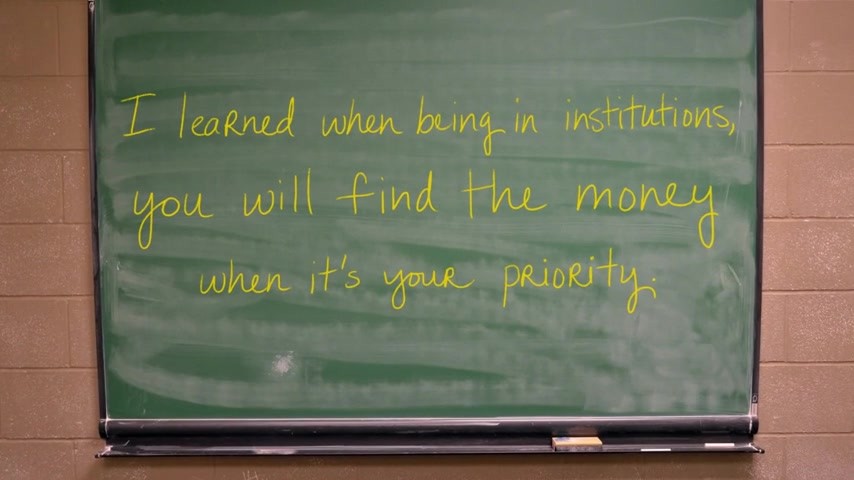 I learned when being in institutions,
you will find the money
when it's your priority.